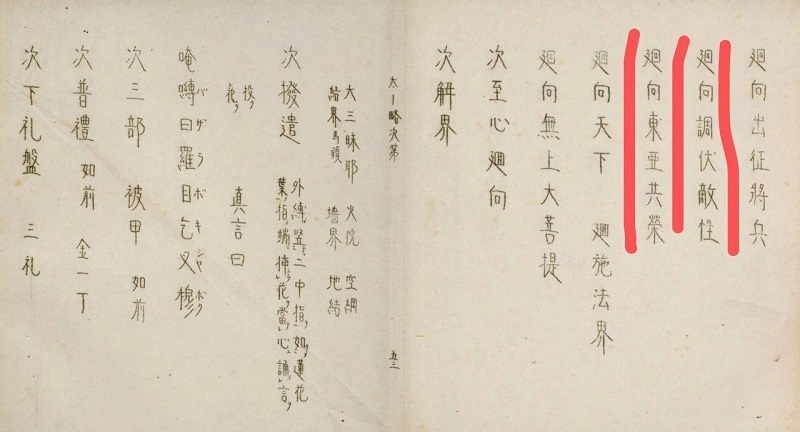 廻向出征將兵
廻向調伏敵性
廻向東亜共榮
廻向天下　廻施法界
廻向無上大菩提
次至心廻向
次解界
大三昧耶　火院　空網
結界馬頭　墻界　地結
次撥遣　外縛竪二中指ヲ如蓮花
葉指端挿花當心誦言
投花　真言曰
唵嚩日羅目乞叉穆
バザラボキシャボク
次三部　被甲　如前
次普禮　如前　金一丁
次下礼盤　三礼